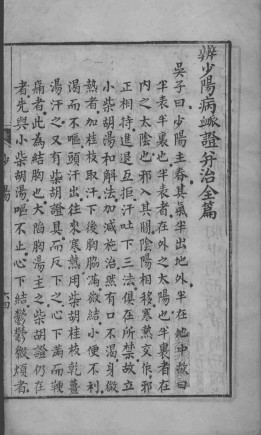 辨少陽病脈證并治全篇
吳子曰少陽主春其氣半出地外半在地中故曰
半表半裏也半表者在外之太陽也半裏者在
內之太陰也邪入其間陰陽相移寒熱交作邪
正相持進退互拒汗吐下三法俱在所禁故立
小柴胡湯和解法加減施治然有口不渴身微
熱者加桂枝取汗下後胸脇滿微結小便不利
渴而不嘔頭汗出往來寒熱用柴胡桂枝乾薑
湯汗之又有柴胡證具而反下之心下滿而鞕
痛者此為結胸也大陷胸湯主之柴胡證仍在
者先與小柴胡湯嘔不止心下結鬱鬱微煩者
少陽